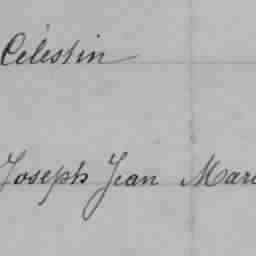 Célestin
Joseph Jean Mari